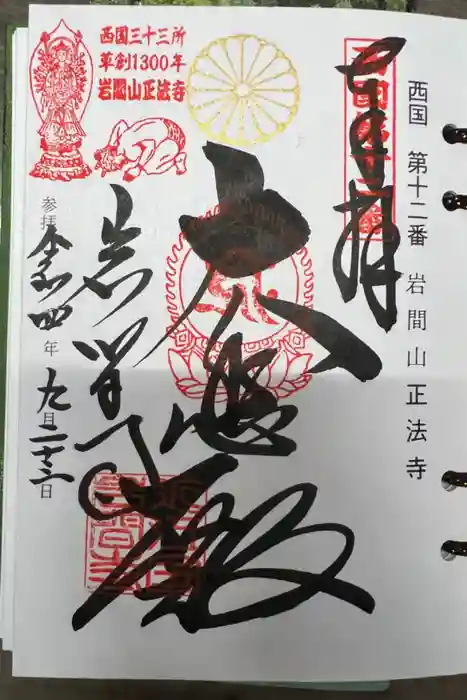 西国 第十二番 岩間山正法寺
奉拝
西国第十二番
大悲殿
岩間寺
西国三十三所
草創1300年
岩間山正法寺
参拝
令和四年九月二十三日